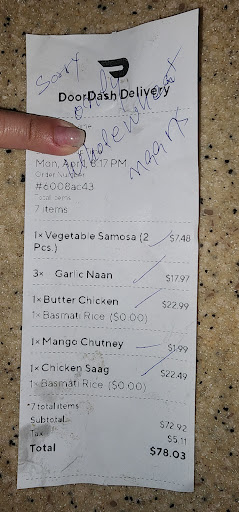 Sorry
only
wholewheat
naans
DoorDash Delivery
Mon, Apr 17 PM
Order Number
#6008ac43
Total items
7 items
1× Vegetable Samosa (2 $7.48
Pcs.)
3× Garlic Naan $17.97
1× Butter Chicken $22.99
1× Basmati Rice ($0.00)
1× Mango Chutney $1.99
1× Chicken Saag $22.49
1× Basmati Rice ($0.00)
*7 total items
Subtotal $72.92
Tax $5.11
Total $78.03